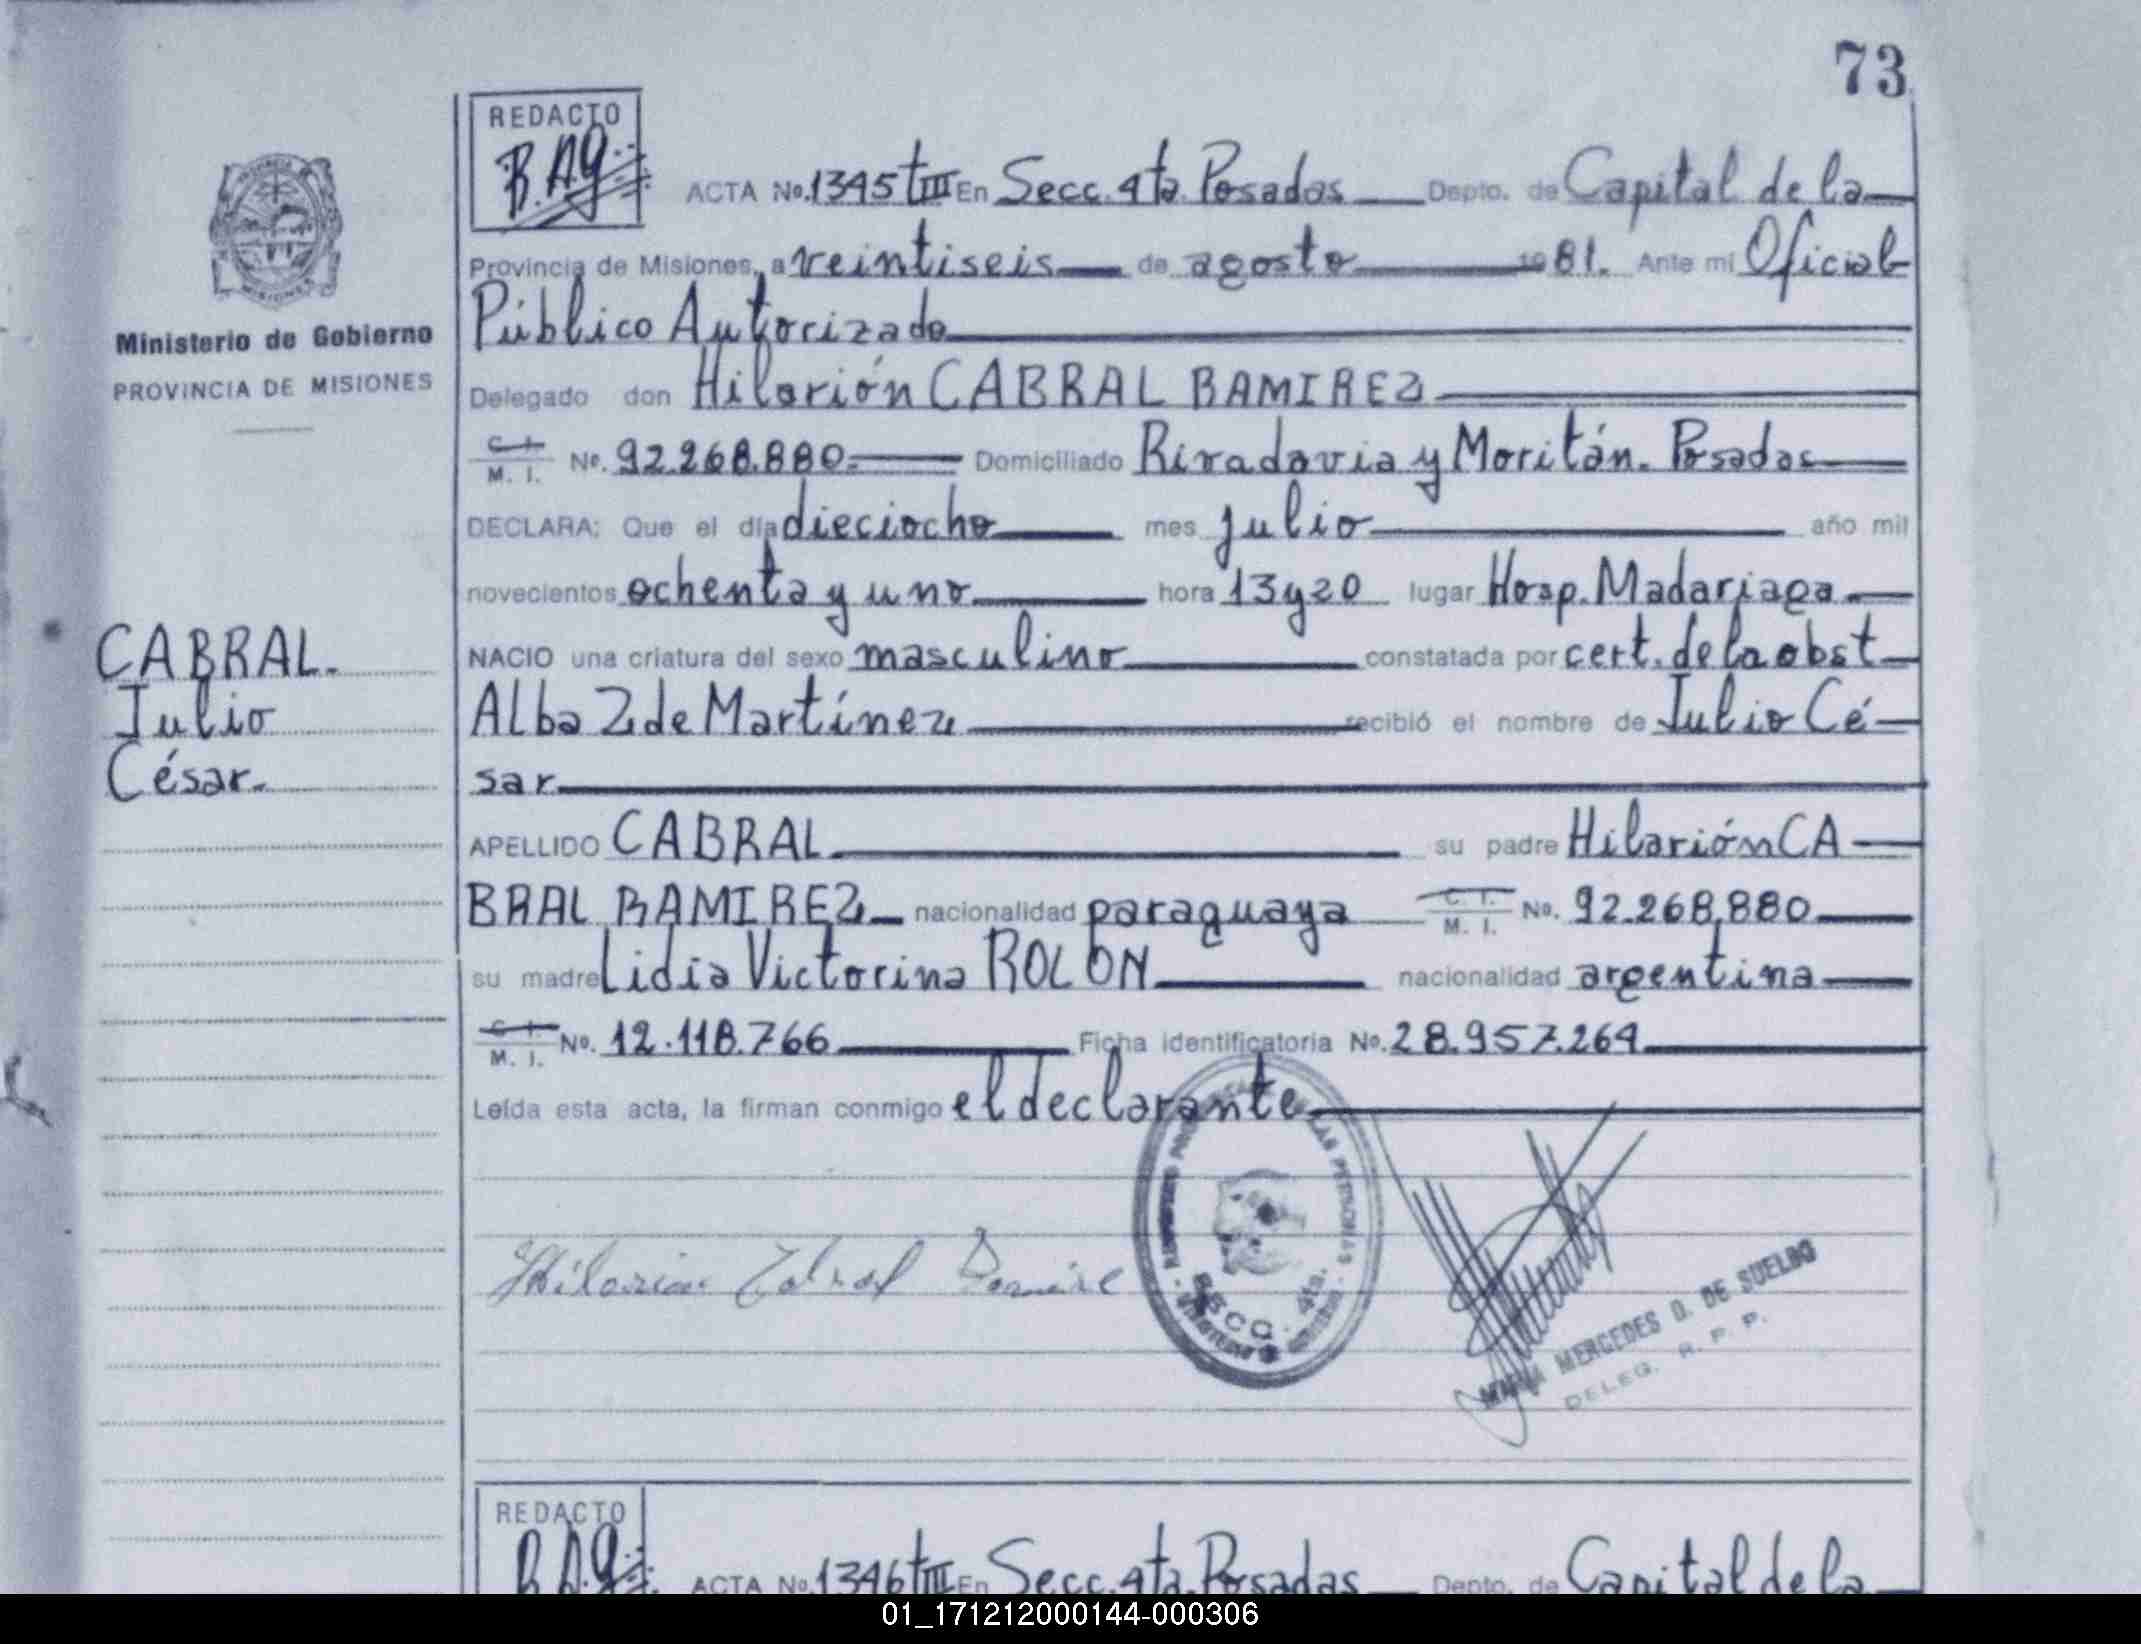 73
REDACTO
B.A.g.
ACTA No. 1345 tIII En Secc. 4ta. Posadas Depto. de Capital de la
Provincia de Misiones, a veintiseis de agosto 1981. Ante mi Oficial
Público Autorizado
Delegado don Hilarión CABRAL RAMIREZ
C. I.
M. I. No. 92.268.880. Domiciliado Rivadavia y Moritán. Posadas
DECLARA: Que el día dieciocho mes julio año mil
novecientos ochenta y uno hora 13 y 20 lugar Hosp. Madariaga.
NACIO una criatura del sexo masculino constatada por cert. de la obst
Alba Z de Martínez recibió el nombre de Julio Cé
sar
APELLIDO CABRAL su padre Hilarión CA
BRAL RAMIREZ nacionalidad paraguaya C. I.
M. I. No. 92.268.880
su madre Lidia Victorina ROLON nacionalidad argentina
C. I.
M. I. No. 12.118.766 Ficha identificatoria No. 28.957.264
Leída esta acta, la firman conmigo el declarante
Ministerio de Gobierno
PROVINCIA DE MISIONES
CABRAL.
Julio
César.
Hilarion Cabral Ramire
LAS PERSONAS
SECC. 4ta.
MARIA MERCEDES Q. DE SUELDO
DELEG. R. P. P.
REDACTO
B.A.g.
ACTA No. 1346 tIII En Secc. 4ta. Posadas Depto. de Capital de la
01_171212000144-000306